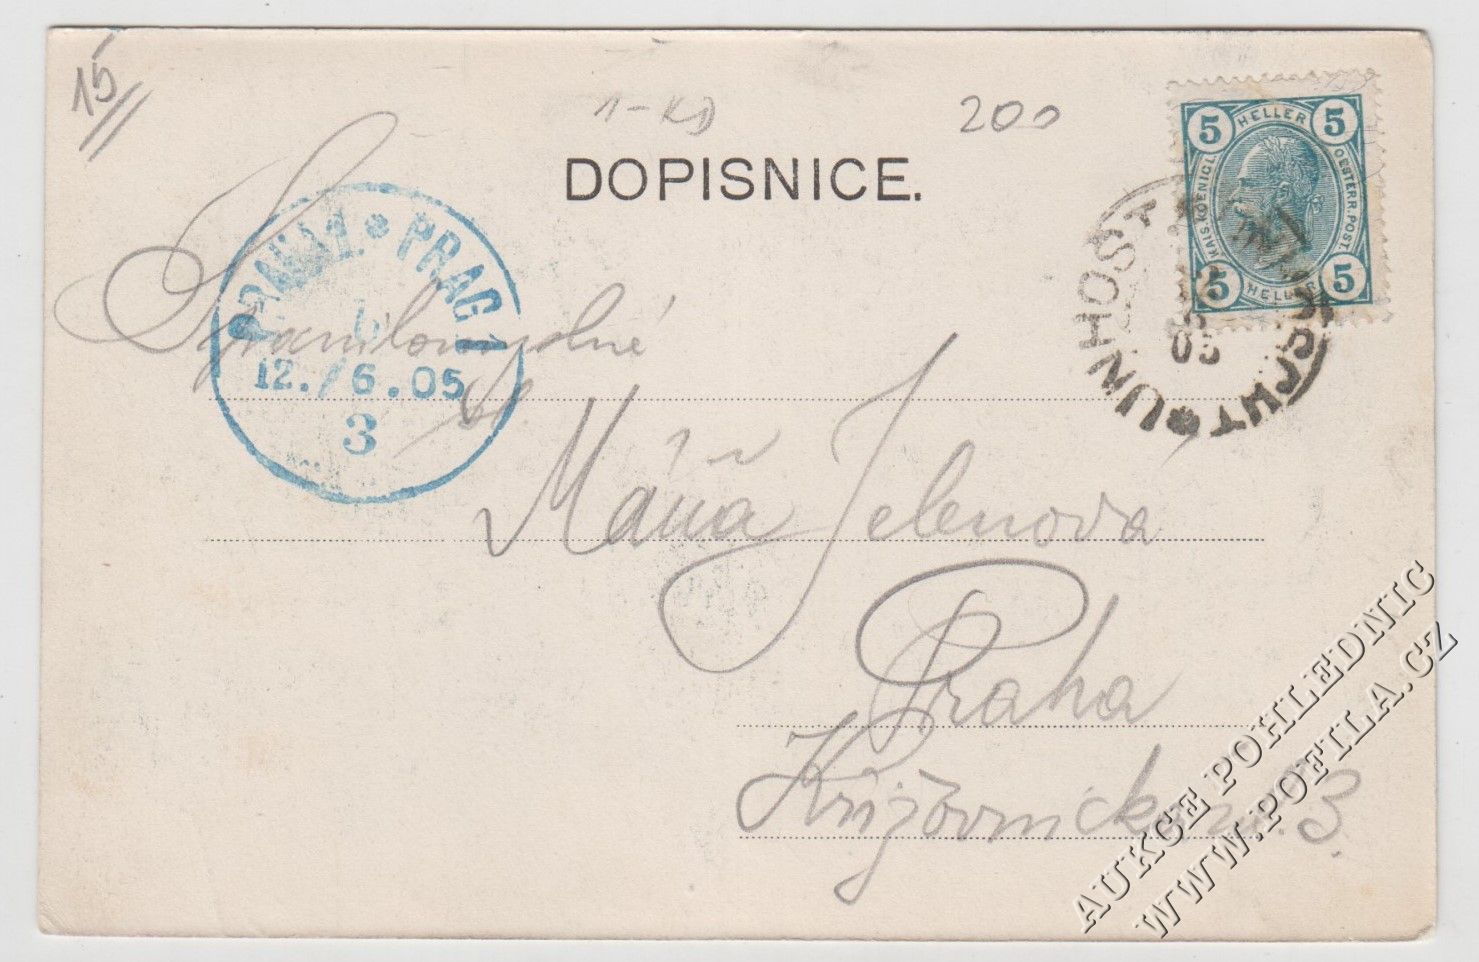 15
1-Kč
200
DOPISNICE.
5 HELLER 5
KAIS. KOENIGL. OESTERR. POST.
5 HELLER 5
UNHOŠŤ
05
PRAHA 1 * PRAG 1
12./6.05
3
Slana
Máňa Jelenova
Praha
Křižovnická 3.
AUKCE POHLEDNIC
WWW.POFILA.CZ